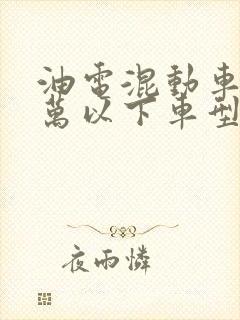 油電混動車
萬以下車型
夜雨憐